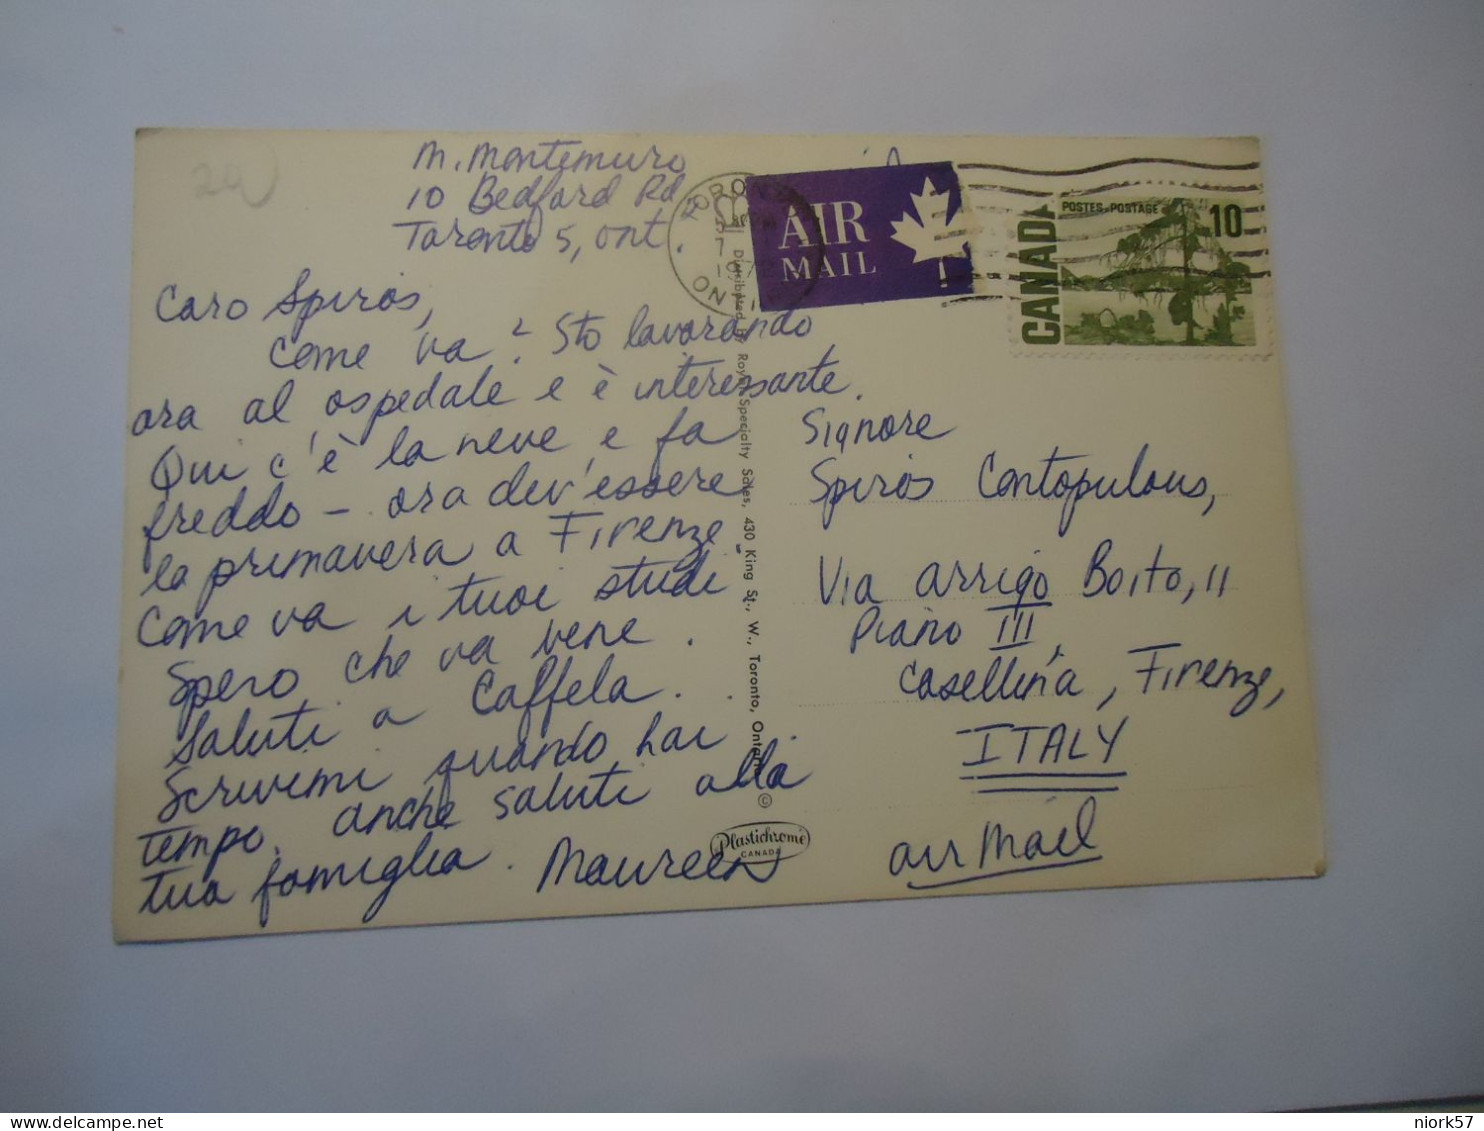 20
M. Montemuro
10 Bedford Rd
Toronto 5, Ont.
Caro Spiros,
Come va? Sto lavorando
ora al ospedale e è interessante.
Qui c'è la neve e fa
freddo - ora dev'essere
la primavera a Firenze.
Come va i tuoi studi
Spero che va bene.
Saluti a Caffela.
Scrivemi quando hai
tempo. anche saluti alla
tua famiglia. Maureen
TORONTO
ONT
AIR
MAIL
CANADA
POSTES-POSTAGE
10
Distributed By Royal Specialty Sales, 430 King St., W., Toronto, Ontario ©
Plastichrome
CANADA
Signore
Spiros Contopulous,
Via Arrigo Boito, 11
Piano III,
Casellina, Firenze,
ITALY
air mail
niork57